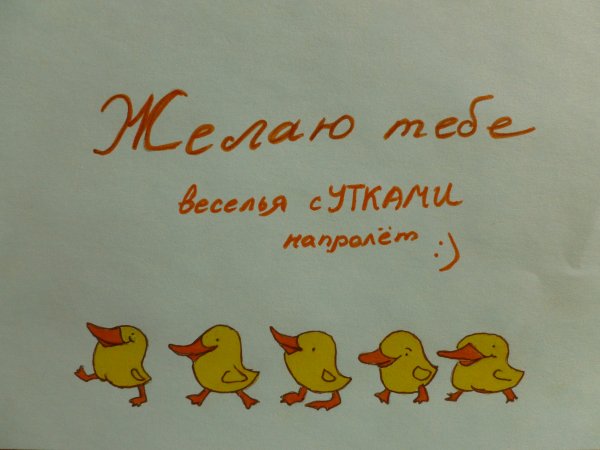 Желаю тебе
веселья сУТКАМИ
напролёт :)